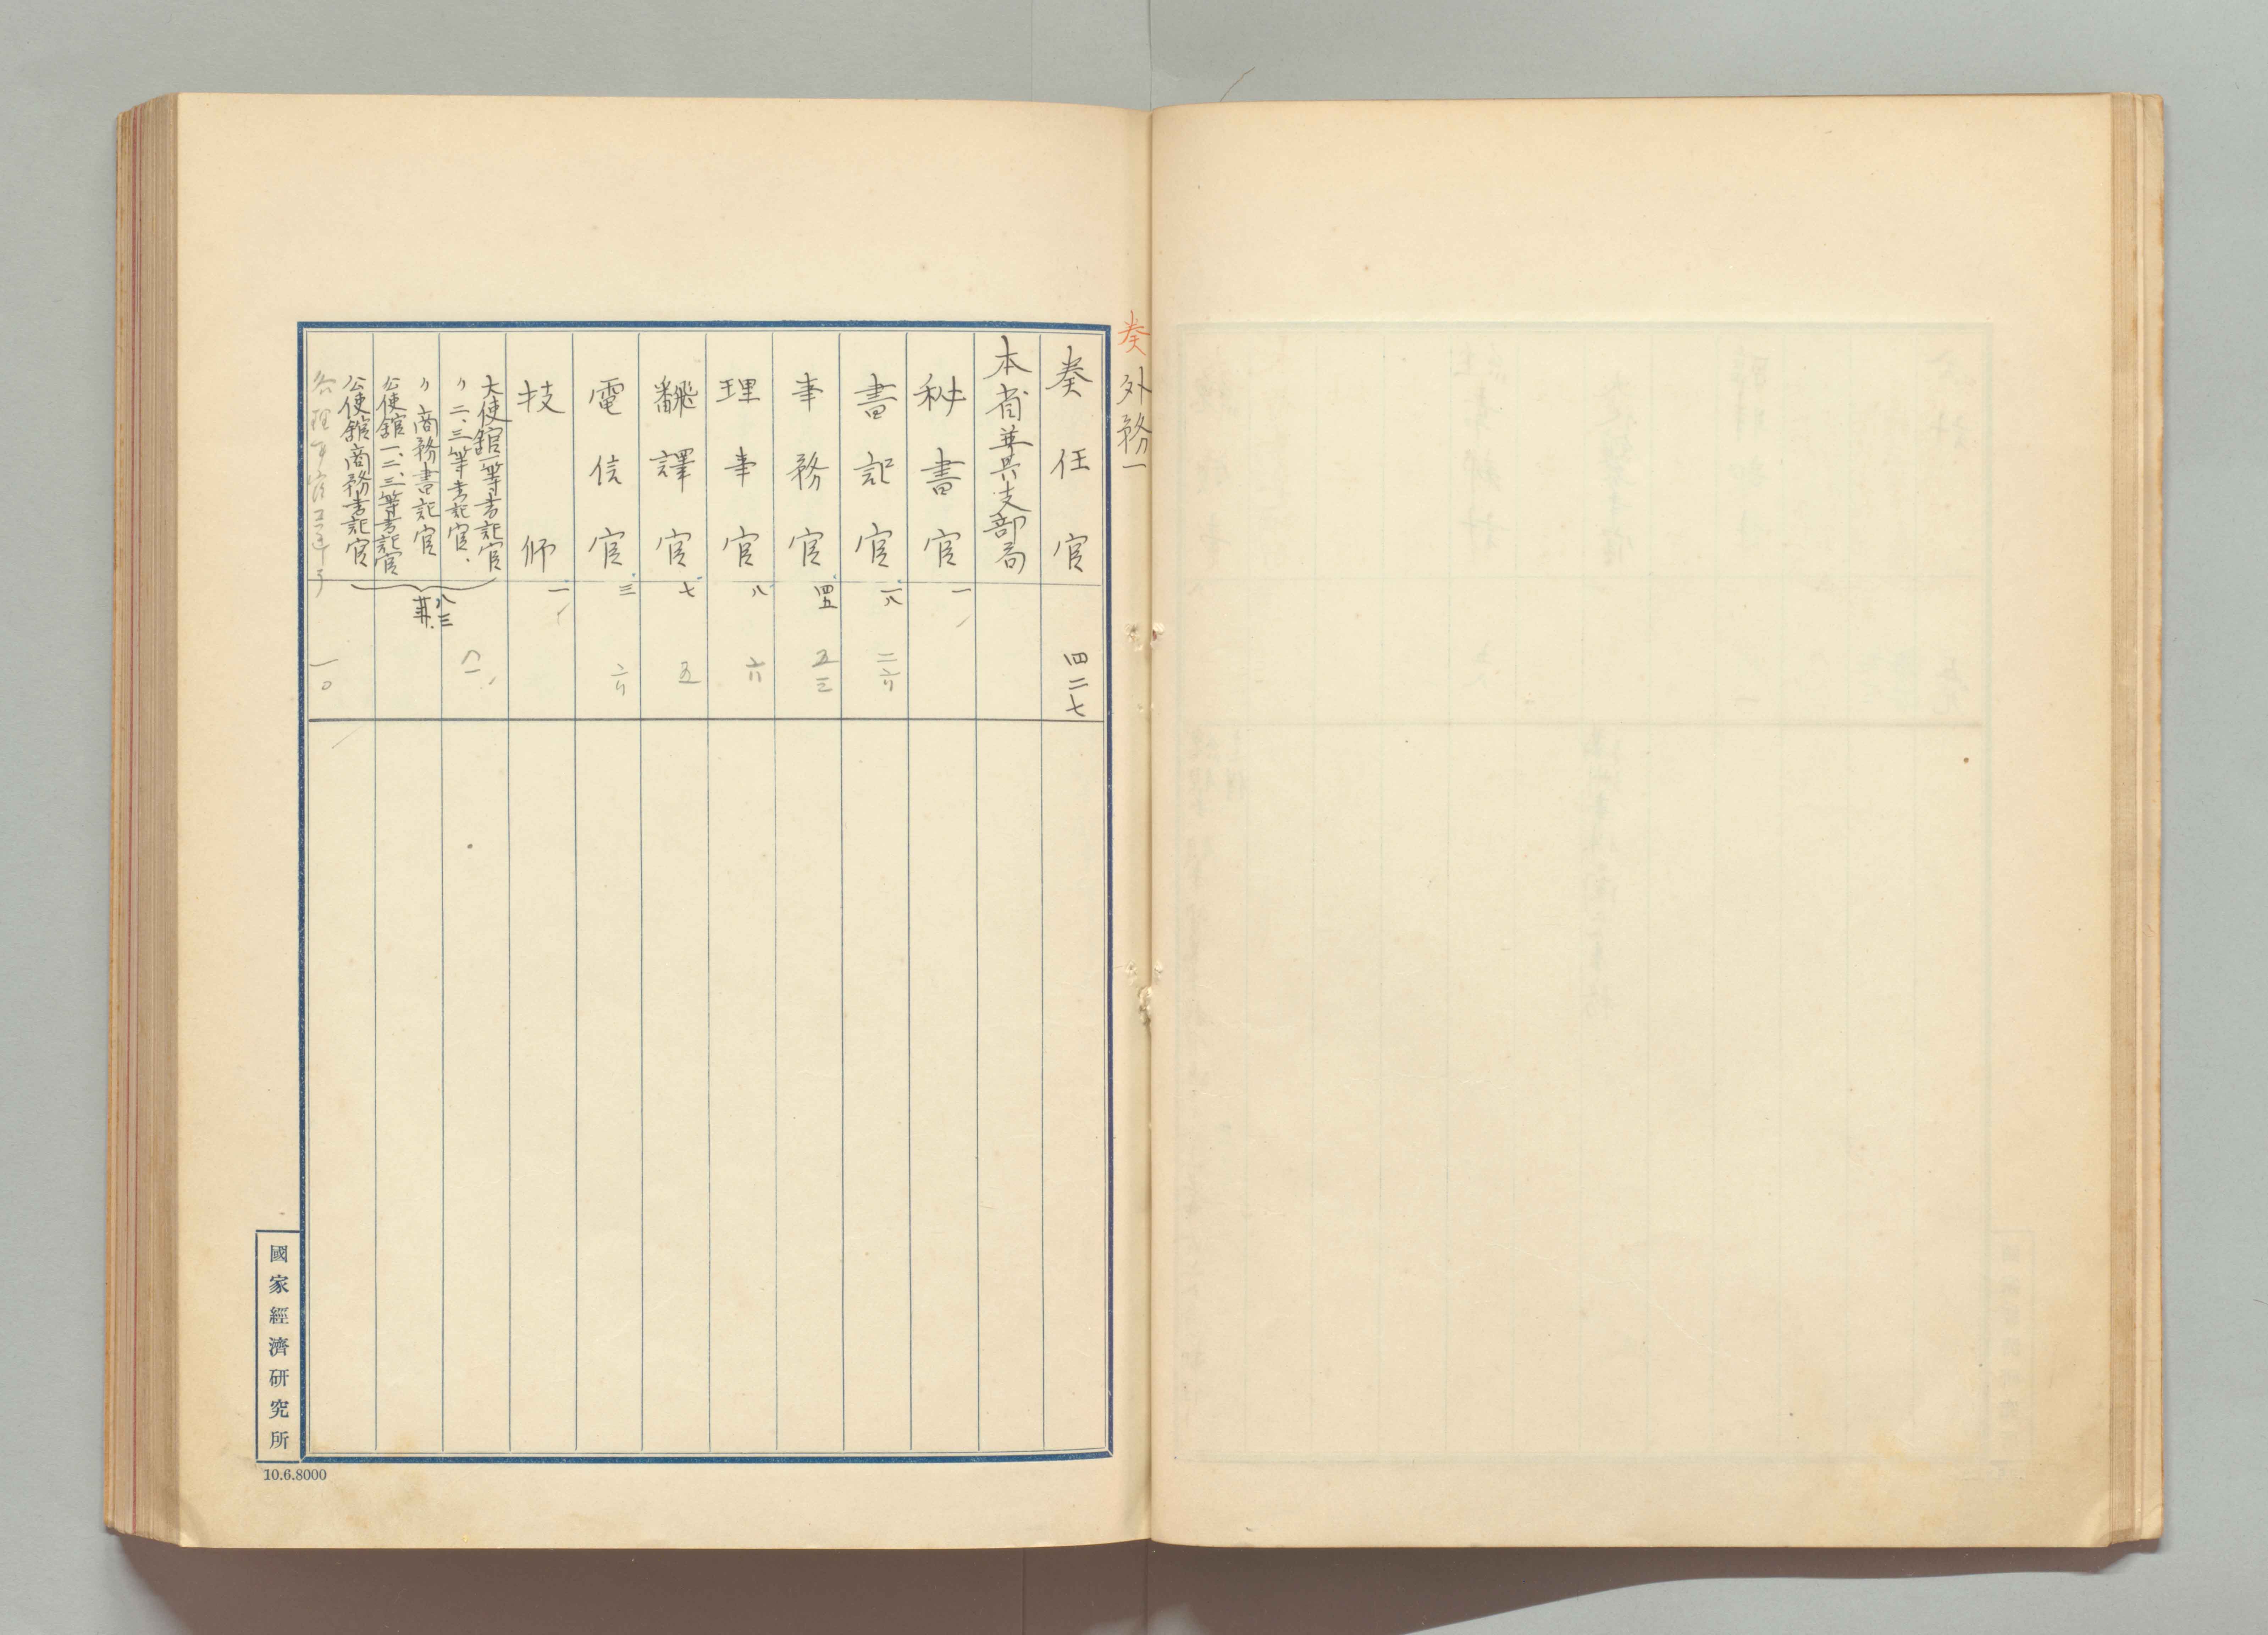 奏
外務一
奏任官 四二七
本省並其支部局
秘書官 一
書記官 一八 二六
事務官 四五 五三
理事官 八 六
飜譯官 七 五
電信官 三 六
技師 一
大使館一等書記官
〃二、三等書記官
〃商務書記官
公使館一、二、三等書記官
公使館商務書記官
八三
八一
一〇
國家經濟研究所
10.6.8000